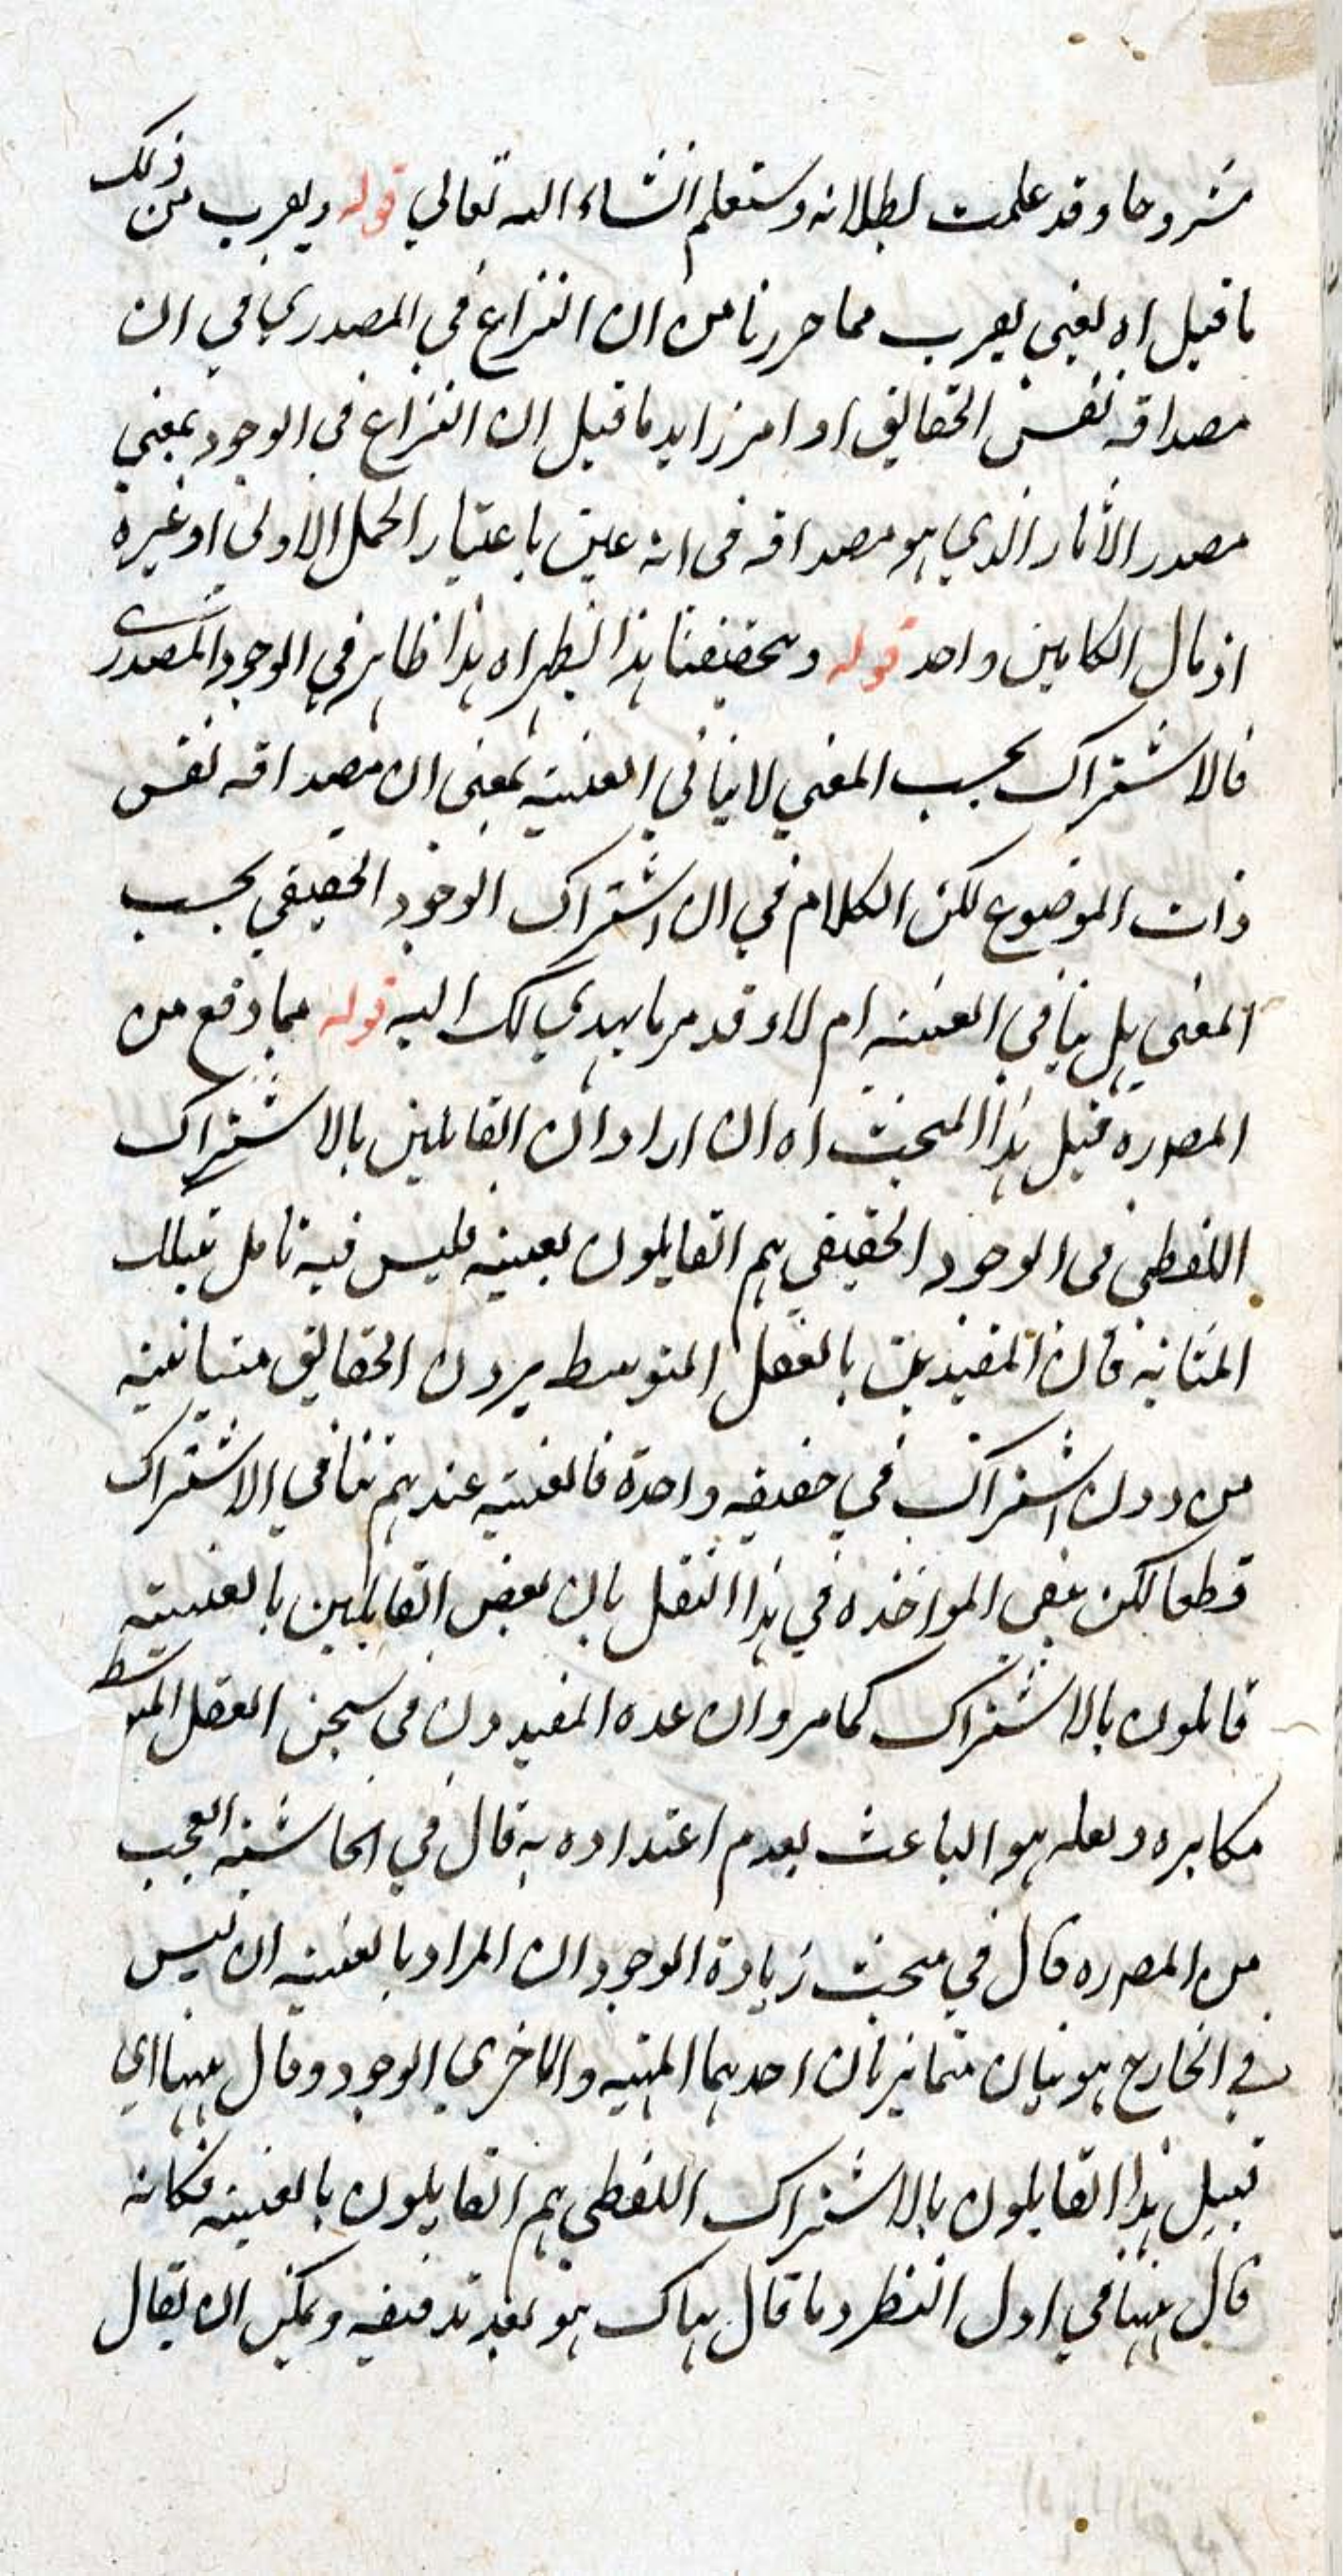 مشروحا وقد علمت بطلانه وستعلم انشاء الله تعالي قوله ويقرب من ذلك
ما قيل اه يعني يقرب مما حررنا من ان النزاع في المصدري في ان
مصداقه نفس الحقايق او امر زايد ما قيل ان النزاع في الوجود بمعني
مصدر الآثار الذي هو مصداقه في انه عين باعتبار الحمل الاولي او غيره
اذ مال الكلامين واحد قوله وبتحقيقنا هذا يظهر اه هذا ظاهر في الوجود المصدري
فالاشتراك بحسب المعني لا ينافي العينية بمعني ان مصداقه نفس
ذات الموضوع لكن الكلام في ان اشتراك الوجود الحقيقي بحسب
المعني هل ينافي العينيه ام لا وقد مر ما يهدي لك اليه قوله مما وقع من
المص ره قبيل هذا المبحث اه ان اراد ان القايلين بالاشتراك
اللفظي في الوجود الحقيقي هم القايلون بعينيه فليس فيه تامل بتلك
المثابه فان المقيدين بالعقل المتوسط يرون الحقايق متباينة
من دون اشتراك في حقيقه واحدة فالعينيه عندهم تنافي الاشتراك
قطعا لكن بقي المواخذه في هذا النقل بان بعض القايلين بالعينية
قايلون بالاشتراك كما مر وان عده المقيدون في سجن العقل المتوسط
مكابره ولعله هو الباعث لعدم اعتداده به قال في الحاشيه العجب
من المص ره قال في مبحث زيادة الوجود ان المراد بالعينيه ان ليس
في الخارج هويتان متمايزتان احدهما المهية والاخري الوجود وقال ههنا اي
قبيل هذا القايلون بالاشتراك اللفظي هم القايلون بالعينيه فكانه
قال ههنا في اول النظر وما قال هناك هو بعد تدقيقه ويمكن ان يقال